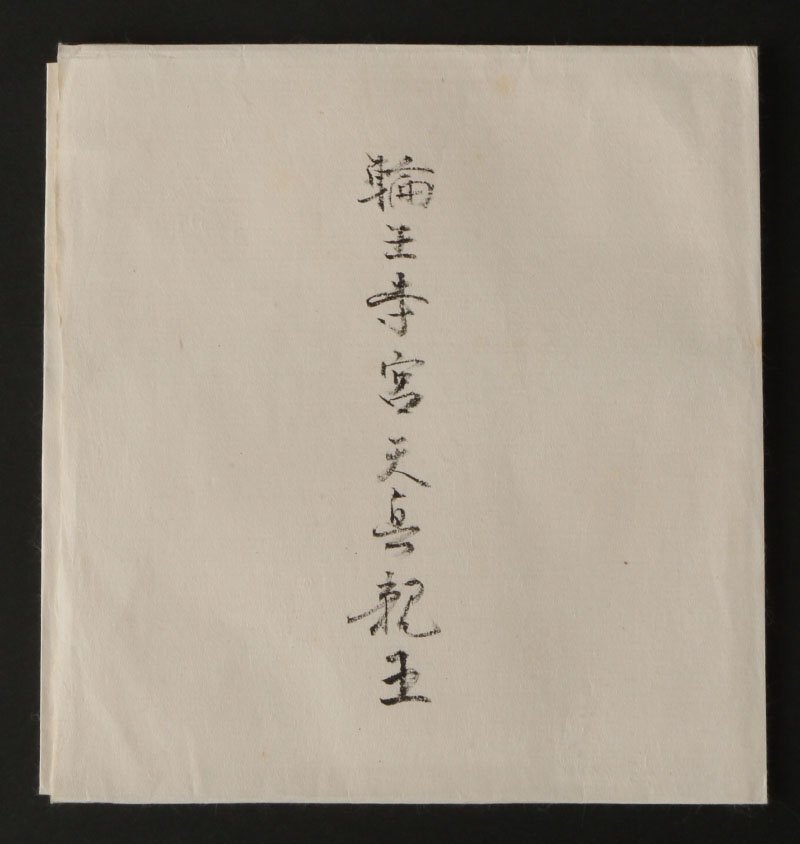 輪王寺宮天真親王